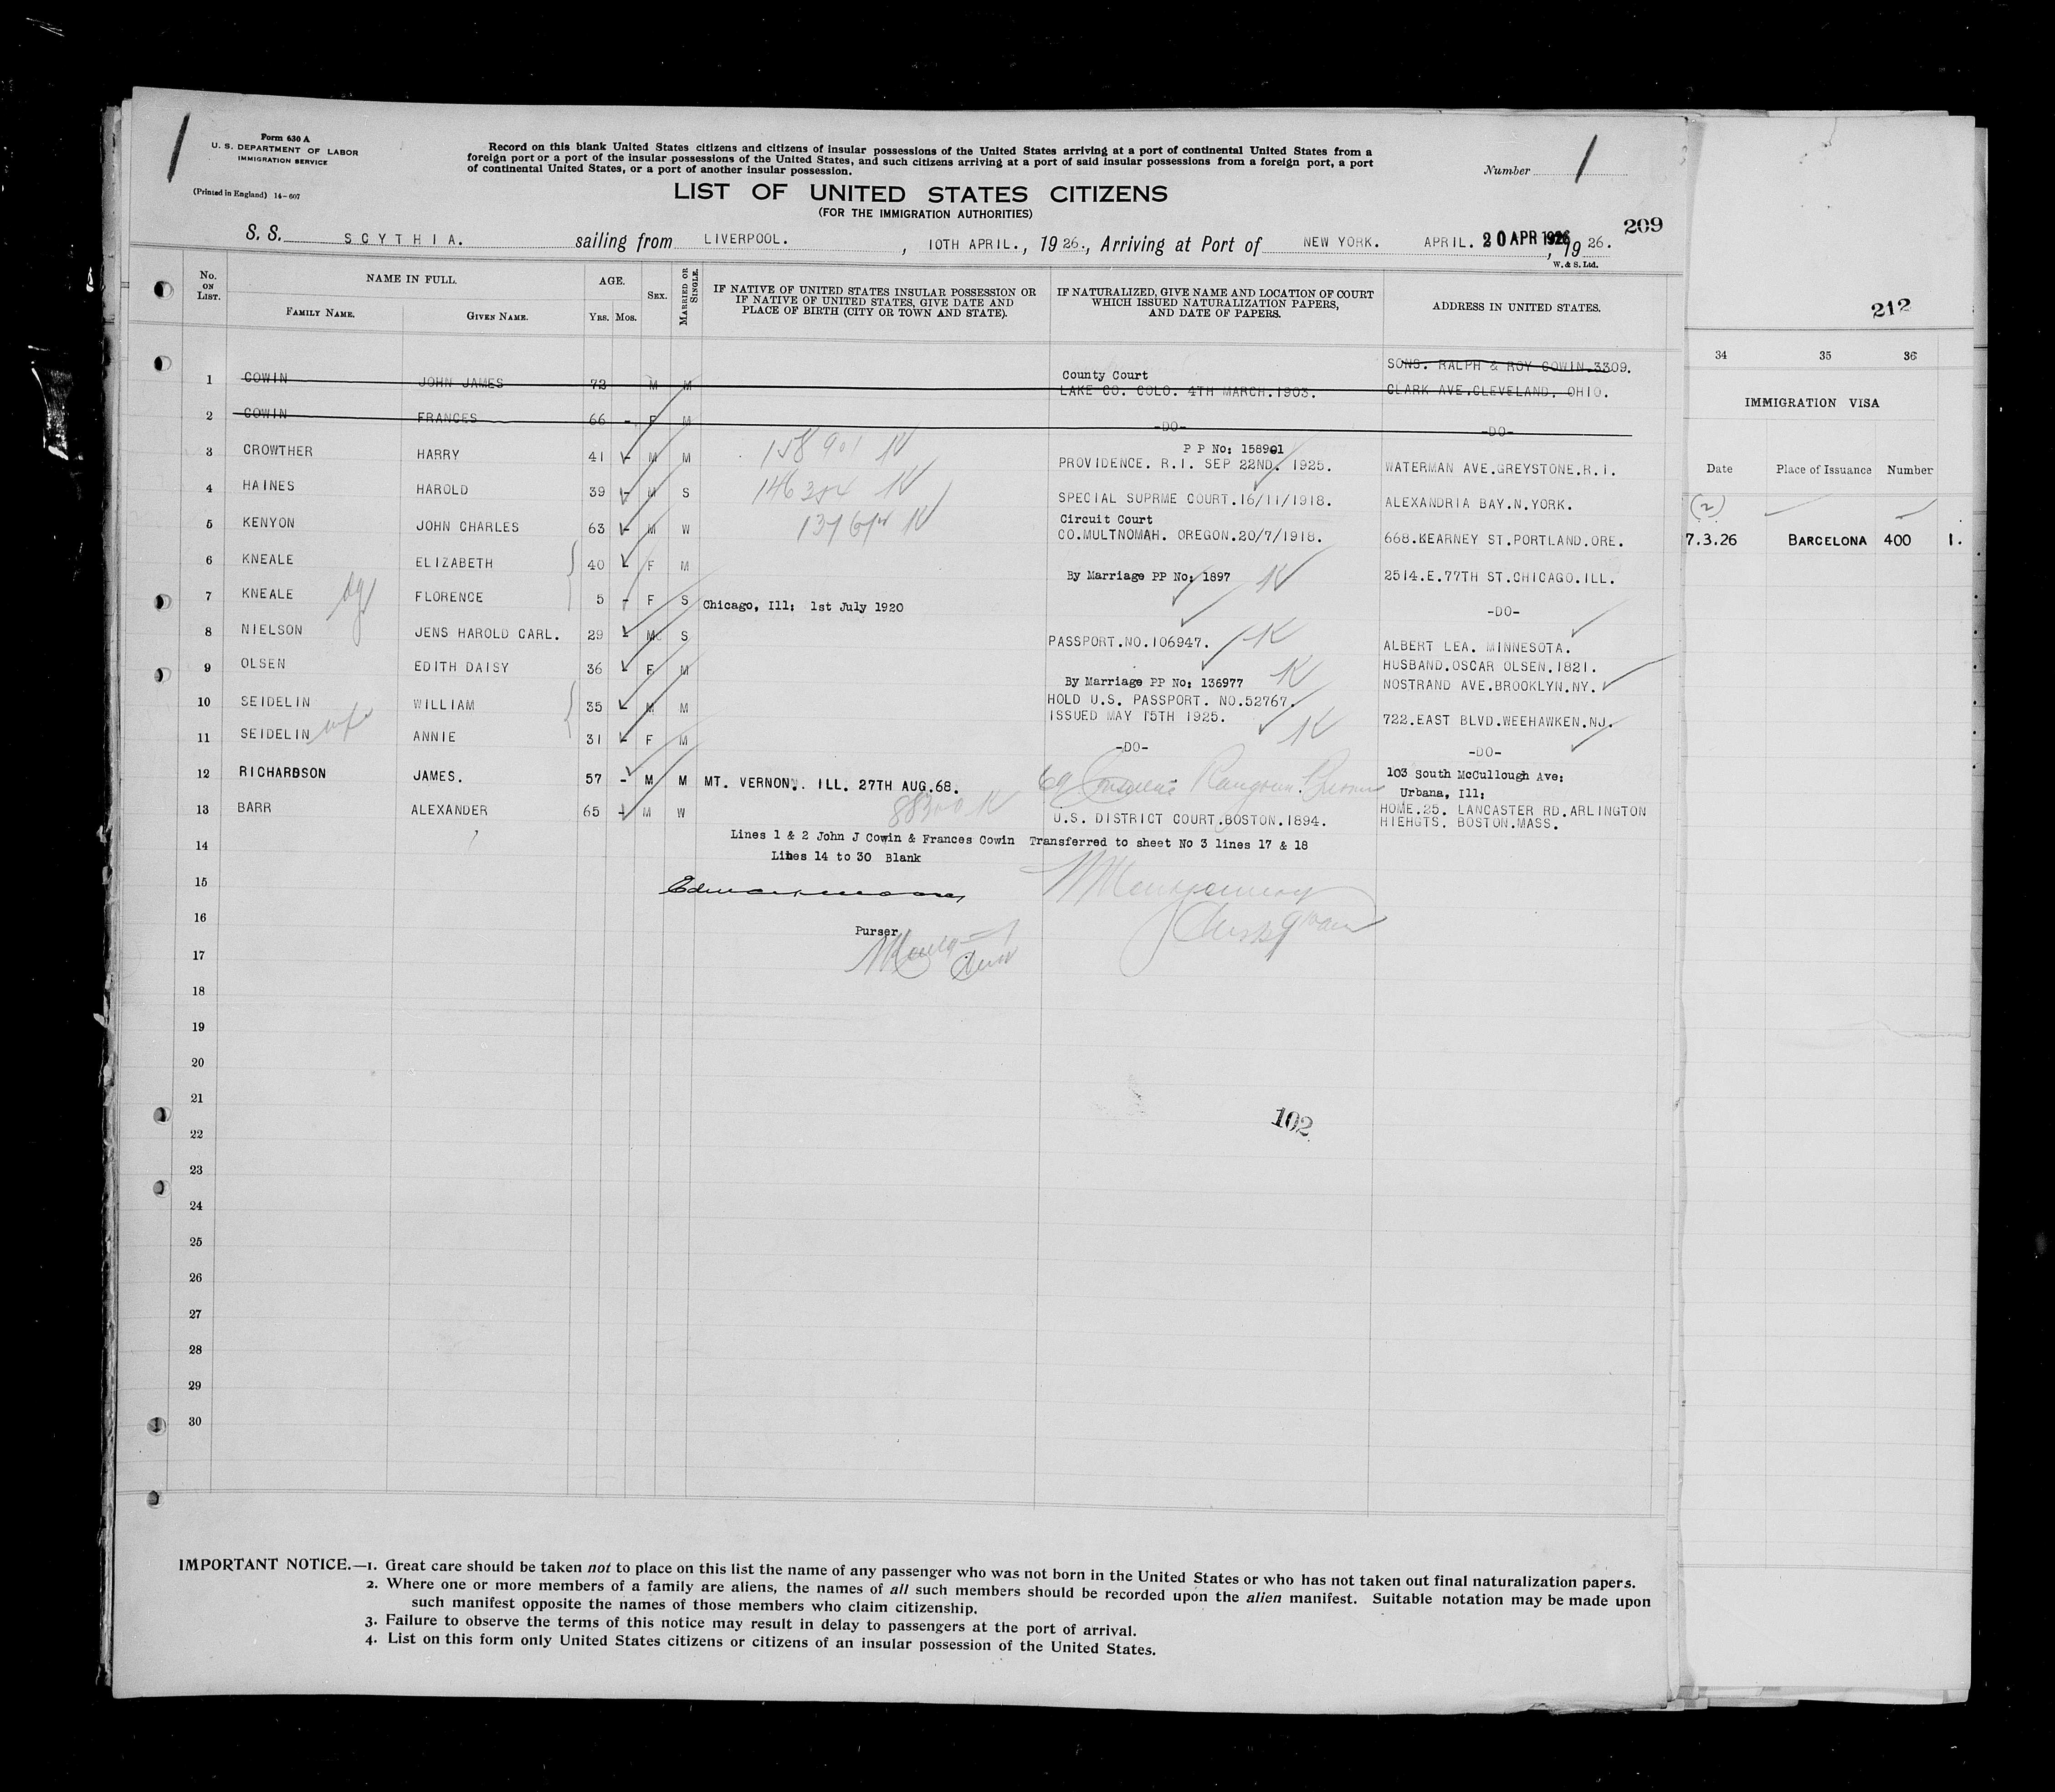 Form 630 A
U. S. DEPARTMENT OF LABOR
IMMIGRATION SERVICE
(Printed in England) 14-607
Record on this blank United States citizens and citizens of insular possessions of the United States arriving at a port of continental United States from a
foreign port or a port of the insular possessions of the United States, and such citizens arriving at a port of said insular possessions from a foreign port, a port
of continental United States, or a port of another insular possession.
Number 1
LIST OF UNITED STATES CITIZENS
(FOR THE IMMIGRATION AUTHORITIES)
209
S. S. SCYTHIA. sailing from LIVERPOOL. , 10TH APRIL. , 1926. , Arriving at Port of NEW YORK. APRIL. 20 APR 1926 , 1926.
W. & S. Ltd.
No. ON LIST. NAME IN FULL. AGE. SEX. MARRIED OR SINGLE. IF NATIVE OF UNITED STATES INSULAR POSSESSION OR IF NATIVE OF UNITED STATES, GIVE DATE AND PLACE OF BIRTH (CITY OR TOWN AND STATE). IF NATURALIZED, GIVE NAME AND LOCATION OF COURT WHICH ISSUED NATURALIZATION PAPERS, AND DATE OF PAPERS. ADDRESS IN UNITED STATES.
FAMILY NAME. GIVEN NAME. YRS. MOS.
SONS. RALPH & ROY COWIN.3309.
1 COWIN JOHN JAMES 72 M M County Court LAKE CO. COLO. 4TH MARCH.1903. CLARK AVE.CLEVELAND. OHIO.
2 COWIN FRANCES 66 - F M -DO- -DO-
3 CROWTHER HARRY 41 - M M 158901 P P No: 158901 PROVIDENCE. R.I. SEP 22ND. 1925. WATERMAN AVE.GREYSTONE.R.I.
4 HAINES HAROLD 39 - M S 146384 SPECIAL SUPRME COURT.16/11/1918. ALEXANDRIA BAY.N.YORK.
5 KENYON JOHN CHARLES 63 - M W Circuit Court CO.MULTNOMAH. OREGON.20/7/1918. 668.KEARNEY ST.PORTLAND.ORE.
6 KNEALE ELIZABETH 40 - F M By Marriage PP No: 1897 2514.E.77TH ST.CHICAGO.ILL.
7 KNEALE FLORENCE 5 - F S Chicago, Ill: 1st July 1920 -DO-
8 NIELSON JENS HAROLD CARL. 29 - M S PASSPORT.NO.106947. ALBERT LEA. MINNESOTA.
9 OLSEN EDITH DAISY 36 - F M By Marriage PP No: 136977 HUSBAND.OSCAR OLSEN.1821. NOSTRAND AVE.BROOKLYN.NY.
10 SEIDELIN WILLIAM 35 - M M HOLD U.S. PASSPORT. NO.52767. ISSUED MAY 15TH 1925. 722.EAST BLVD.WEEHAWKEN.NJ.
11 SEIDELIN wife ANNIE 31 - F M -DO- -DO-
12 RICHARDSON JAMES. 57 - M M MT. VERNON.. ILL. 27TH AUG.68. 103 South McCullough Ave: Urbana, Ill:
13 BARR ALEXANDER 65 - M W U.S. DISTRICT COURT.BOSTON.1894. HOME.25. LANCASTER RD.ARLINGTON HIEHGTS. BOSTON.MASS.
Lines 1 & 2 John J Cowin & Frances Cowin Transferred to sheet No 3 lines 17 & 18
14 Lines 14 to 30 Blank
15
16 Purser
17
18
19
20
21
102
22
23
24
25
26
27
28
29
30
IMPORTANT NOTICE.—1. Great care should be taken not to place on this list the name of any passenger who was not born in the United States or who has not taken out final naturalization papers.
2. Where one or more members of a family are aliens, the names of all such members should be recorded upon the alien manifest. Suitable notation may be made upon
such manifest opposite the names of those members who claim citizenship.
3. Failure to observe the terms of this notice may result in delay to passengers at the port of arrival.
4. List on this form only United States citizens or citizens of an insular possession of the United States.
212
34 35 36
IMMIGRATION VISA
Date Place of Issuance Number
(2)
7.3.26 BARCELONA 400 1.